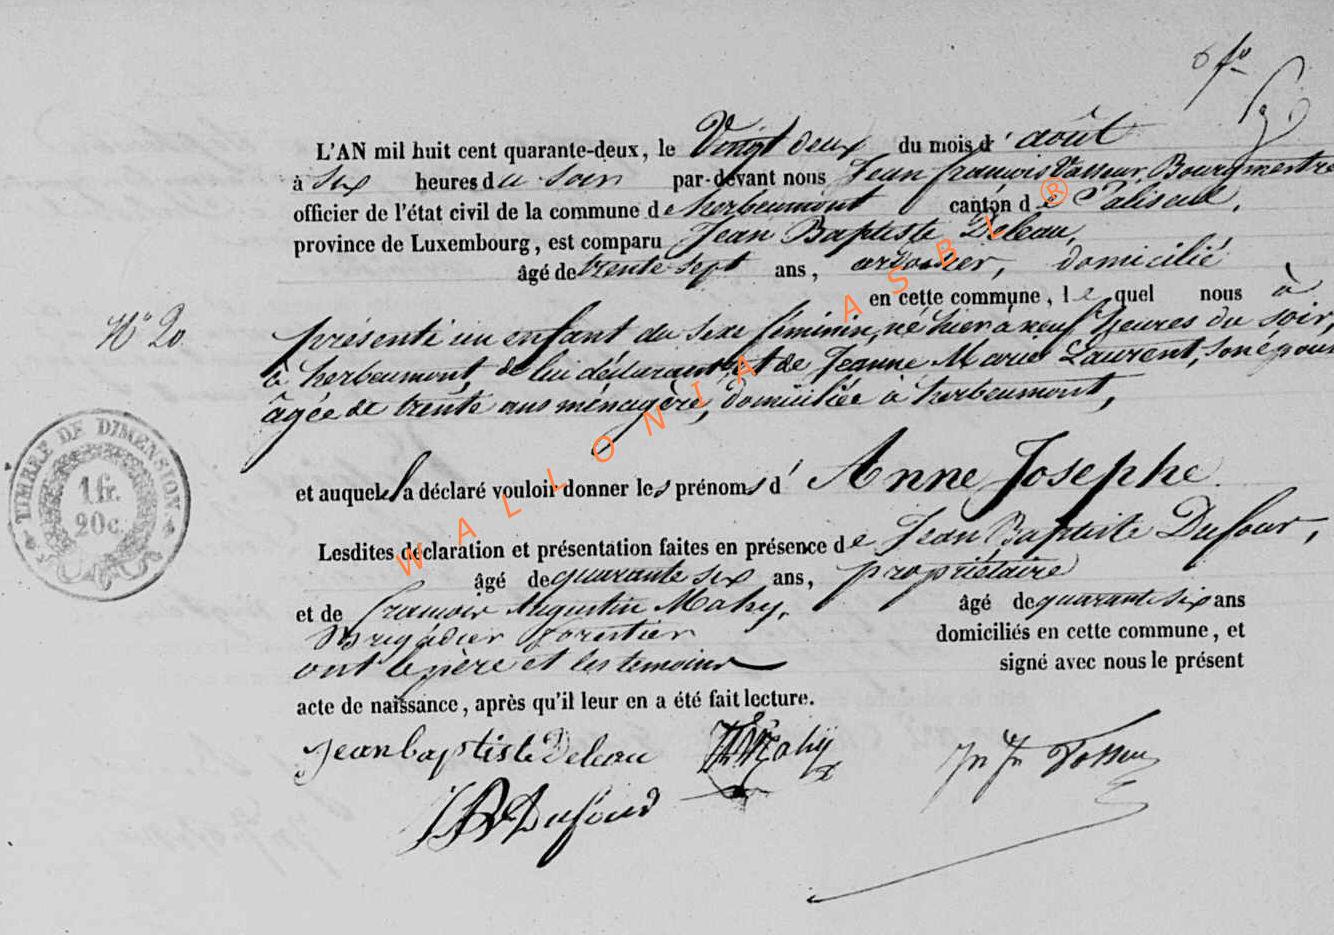 6 fo
L'AN mil huit cent quarante-deux, le Vingt deux du mois d'août
à six heures du soir par-devant nous Jean françois Vasseur, Bourgmestre
officier de l'état civil de la commune de herbeumont canton de Paliseul,
province de Luxembourg, est comparu Jean Baptiste Deleau,
âgé de trente sept ans, ardoisier, domicilié
en cette commune, lequel nous à
N° 20 présenté un enfant du sexe féminin, né hier à neuf heures du soir,
à herbeumont, de lui déclarant et de Jeanne Marie Laurent, son épouse
âgée de trente ans ménagère, domiciliée à herbeumont,
et auquel il a déclaré vouloir donner les prénoms d' Anne Josephe.
Lesdites déclaration et présentation faites en présence de Jean Baptiste Dufour,
âgé de quarante six ans, propriétaire
et de françois Augustin Mahy, âgé de quarante six ans
Brigadier forestier domiciliés en cette commune, et
ont le père et les temoins signé avec nous le présent
acte de naissance, après qu'il leur en a été fait lecture.
Jean baptiste Deleau Mahy
JB Dufour
TIMBRE DE DIMENSION
1 fr.
20 c.
WALLONIA ASBL ®